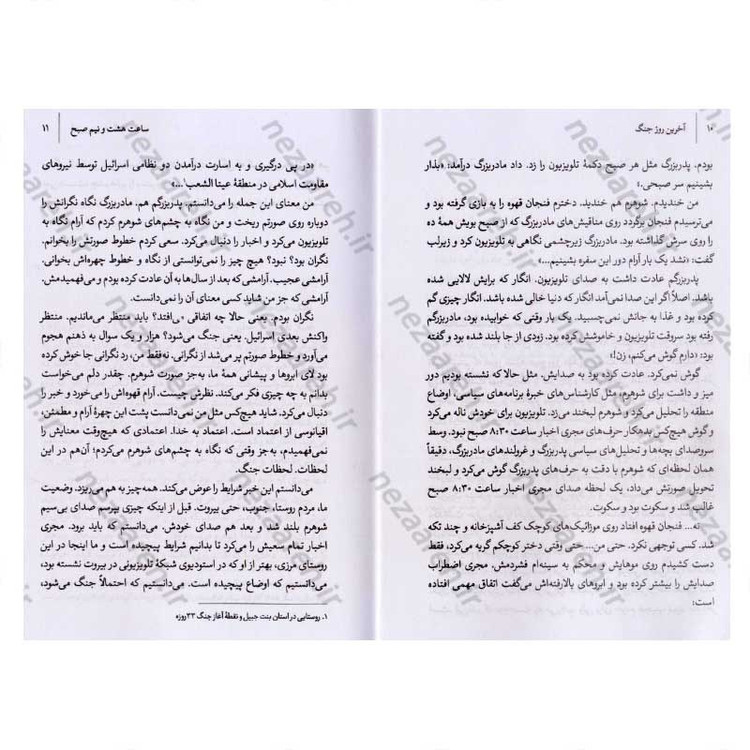 ۱۰ | آخرین روز جنگ
بودم. پدربزرگ مثل هر صبح دکمهٔ تلویزیون را زد. داد مادربزرگ درآمد: «بذار
بشینیم سر صبحی.»
من خندیدم. شوهرم هم خندید. دخترم فنجان قهوه را به بازی گرفته بود و
می‌ترسیدم فنجان برگردد روی مناقیش‌های مادربزرگ که از صبح بویش همهٔ ده
را روی سرش گذاشته بود. مادربزرگ زیرچشمی نگاهی به تلویزیون کرد و زیرلب
گفت: «نشد یک بار آرام دور این سفره بشینیم...»
پدربزرگم عادت داشت به صدای تلویزیون. انگار که برایش لالایی شده
باشد. اصلاً اگر این صدا نمی‌آمد انگار که دنیا خالی شده باشد. انگار چیزی گم
کرده بود و غذا به جانش نمی‌چسبید. یک بار وقتی که خوابیده بود، مادربزرگم
رفته بود سروقت تلویزیون و خاموشش کرده بود. زودی از جا بلند شده بود و گفته
بود: «دارم گوش می‌کنم، زن!»
گوش نمی‌کرد. عادت کرده بود به صدایش. مثل حالا که نشسته بودیم دور
میز و داشت برای شوهرم، مثل کارشناس‌های خبرهٔ برنامه‌های سیاسی، اوضاع
منطقه را تحلیل می‌کرد و شوهرم لبخند می‌زد. تلویزیون برای خودش ناله می‌کرد
و گوش هیچ‌کس بدهکار حرف‌های مجری اخبار ساعت ۸:۳۰ صبح نبود. وسط
سروصدای بچه‌ها و تحلیل‌های سیاسی پدربزرگ و غرولندهای مادربزرگ، دقیقاً
همان لحظه‌ای که شوهرم با دقت به حرف‌های پدربزرگ گوش می‌کرد و لبخند
تحویل صورتش می‌داد، یک لحظه صدای مجری اخبار ساعت ۸:۳۰ صبح
غالب شد و سکوت بود و سکوت.
نه... فنجان قهوه افتاد روی موزائیک‌های کوچک کف آشپزخانه و چند تکه
شد. کسی توجهی نکرد. حتی من... حتی وقتی دختر کوچکم گریه می‌کرد، فقط
دست کشیدم روی موهایش و محکم به سینه‌ام فشردمش. مجری اضطراب
صدایش را بیشتر کرده بود و ابروهای بالارفته‌اش می‌گفت اتفاق مهمی افتاده
است:
ساعت هشت و نیم صبح | ۱۱
«در پی درگیری و به اسارت درآمدن دو نظامی اسرائیل توسط نیروهای
مقاومت اسلامی در منطقهٔ عیتا الشعب۱...»
من معنای این جمله را می‌دانستم. پدربزرگم هم. مادربزرگ نگاه نگرانش را
دوباره روی صورتم ریخت و من نگاه به چشم‌های شوهرم کردم که آرام به
تلویزیون نگاه می‌کرد و اخبار را دنبال می‌کرد. سعی کردم خطوط صورتش را بخوانم.
نگران بود؟ نبود؟ هیچ چیز را نمی‌توانستی از نگاه و خطوط چهره‌اش بخوانی.
آرامشی عجیب. آرامشی که بعد از سال‌ها به آن عادت کرده بودم و می‌فهمیدمش.
آرامشی که جز من شاید کسی معنای آن را نمی‌دانست.
نگران بودم. یعنی حالا چه اتفاقی می‌افتد؟ باید منتظر می‌ماندیم. منتظر
واکنش بعدی اسرائیل. یعنی جنگ می‌شود؟ هزار و یک سوال به ذهنم هجوم
می‌آورد و خطوط صورتم پر می‌شد از نگرانی. نه فقط من، رد نگرانی جا خوش کرده
بود لای ابروها و پیشانی همهٔ ما، به‌جز صورت شوهرم. چقدر دلم می‌خواست
بدانم به چه چیزی فکر می‌کند. نظرش چیست. آرام قهوه‌اش را می‌خورد و خبر را
دنبال می‌کرد. شاید هیچ‌کس مثل من نمی‌دانست پشت این چهرهٔ آرام و مطمئن،
اقیانوسی از اعتماد است. اعتماد به خدا. اعتمادی که هیچ‌وقت معنایش را
نمی‌فهمیدم، به‌جز وقتی که نگاه به چشم‌های شوهرم می‌کردم؛ آن‌هم در این
لحظات. لحظات جنگ.
می‌دانستم این خبر شرایط را عوض می‌کند. همه‌چیز به هم می‌ریزد. وضعیت
ما، مردم روستا، جنوب، حتی بیروت. قبل از اینکه چیزی بپرسم صدای بی‌سیم
شوهرم بلند شد و بعد هم صدای خودش. می‌دانستم که باید برود. مجری
اخبار تمام سعیش را می‌کرد تا بدانیم شرایط پیچیده است و ما اینجا در این
روستای مرزی، بهتر از او که در استودیوی شبکهٔ تلویزیونی در بیروت نشسته بود،
می‌دانستیم که اوضاع پیچیده است. می‌دانستیم که احتمالاً جنگ می‌شود،
۱. روستایی در استان بنت جبیل و نقطهٔ آغاز جنگ ۳۳روزه
nezaareh.ir